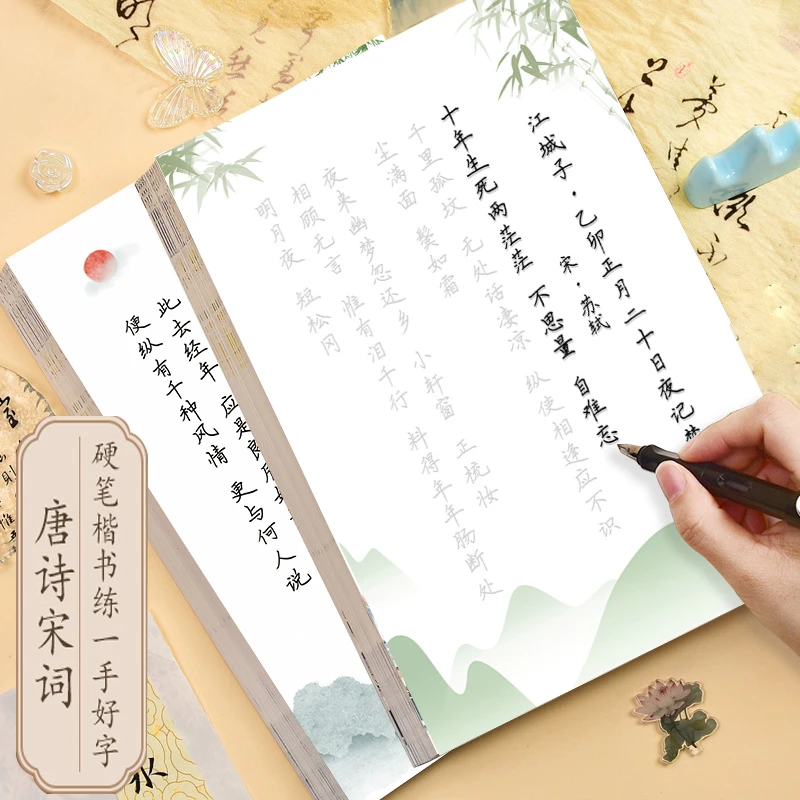 江城子·乙卯正月二十日夜记梦
宋·苏轼
十年生死两茫茫 不思量 自难忘
千里孤坟 无处话凄凉 纵使相逢应不识
尘满面 鬓如霜
夜来幽梦忽还乡 小轩窗 正梳妆
相顾无言 惟有泪千行 料得年年肠断处
明月夜 短松冈
此去经年 应是良辰
便纵有千种风情 更与何人说
硬笔楷书练一手好字
唐诗宋词
水